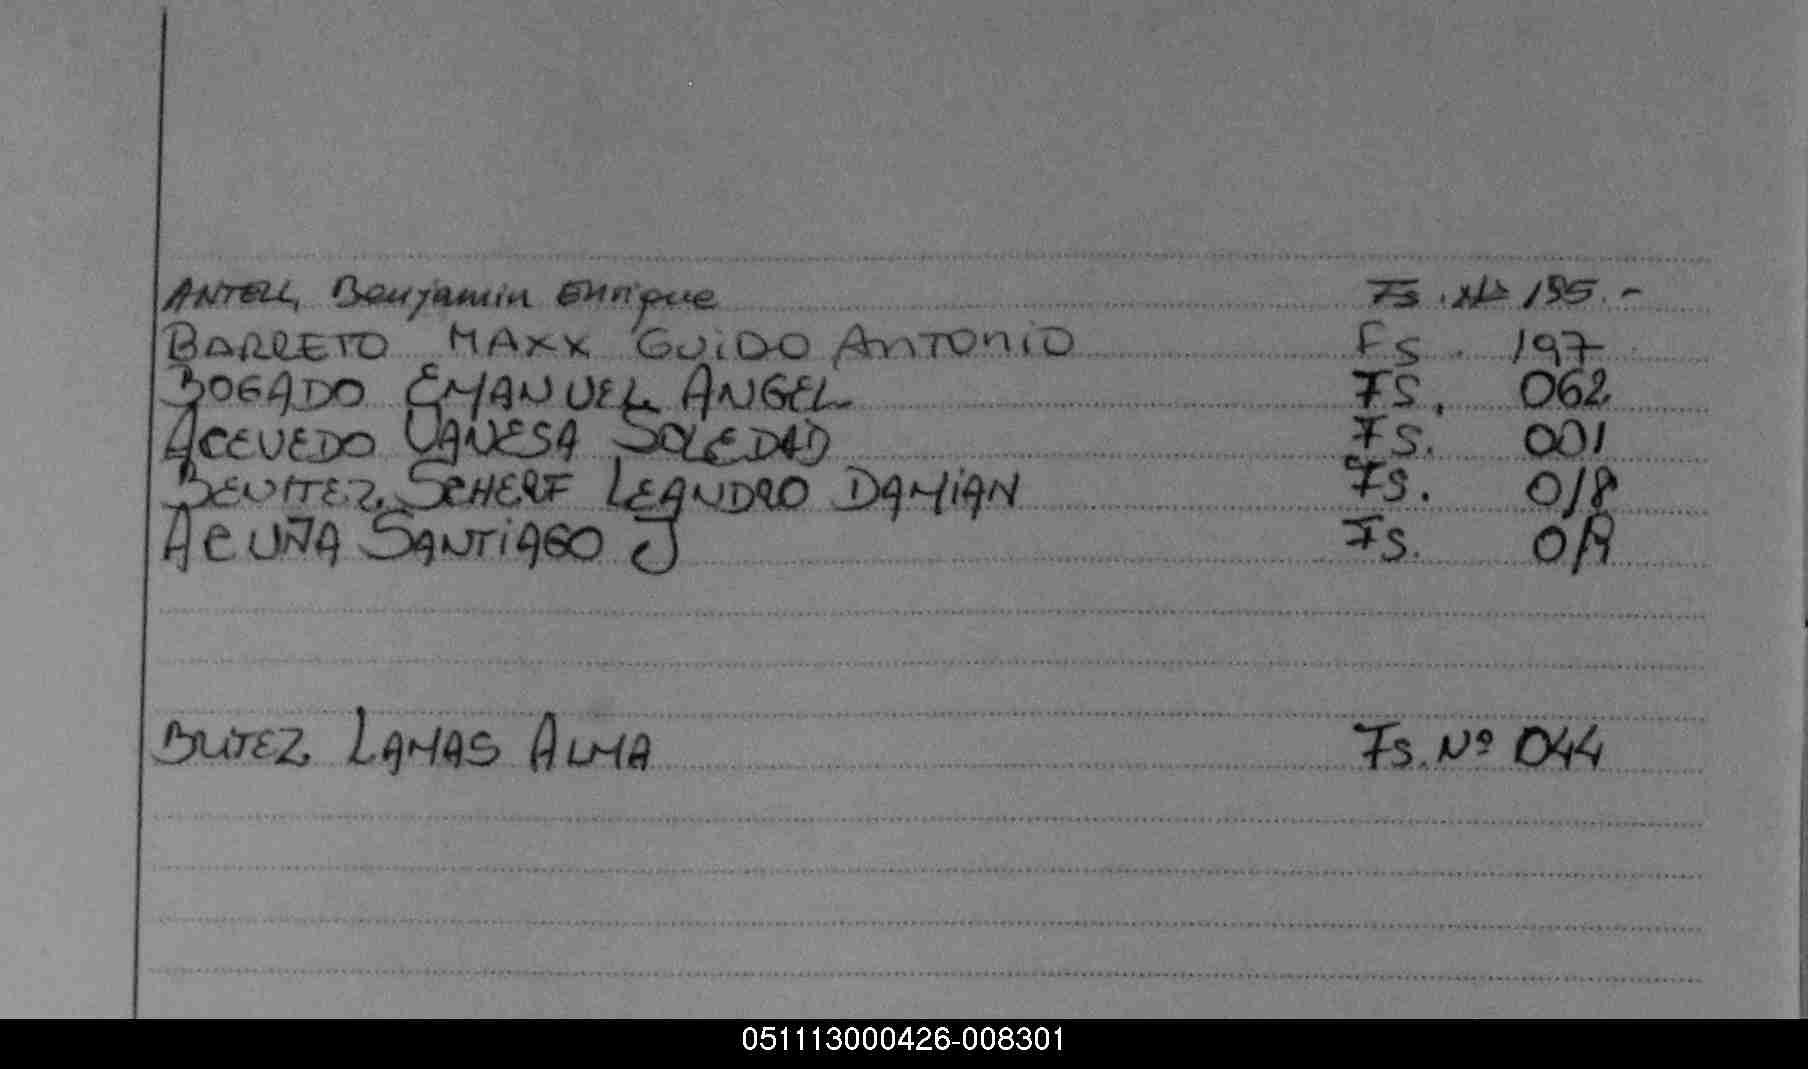 ANTELL, Benjamin Enrique Fs. Nº 195.-
BARRETO MAXX GUIDO ANTONIO Fs. 197
BOGADO EMANUEL ANGEL FS. 062
ACEVEDO VANESA SOLEDAD FS. 001
BENITEZ SCHERF LEANDRO DAMIAN FS. 018
ACUÑA SANTIAGO J FS.
BRITEZ LAMAS ALMA FS. Nº 044
051113000426-008301